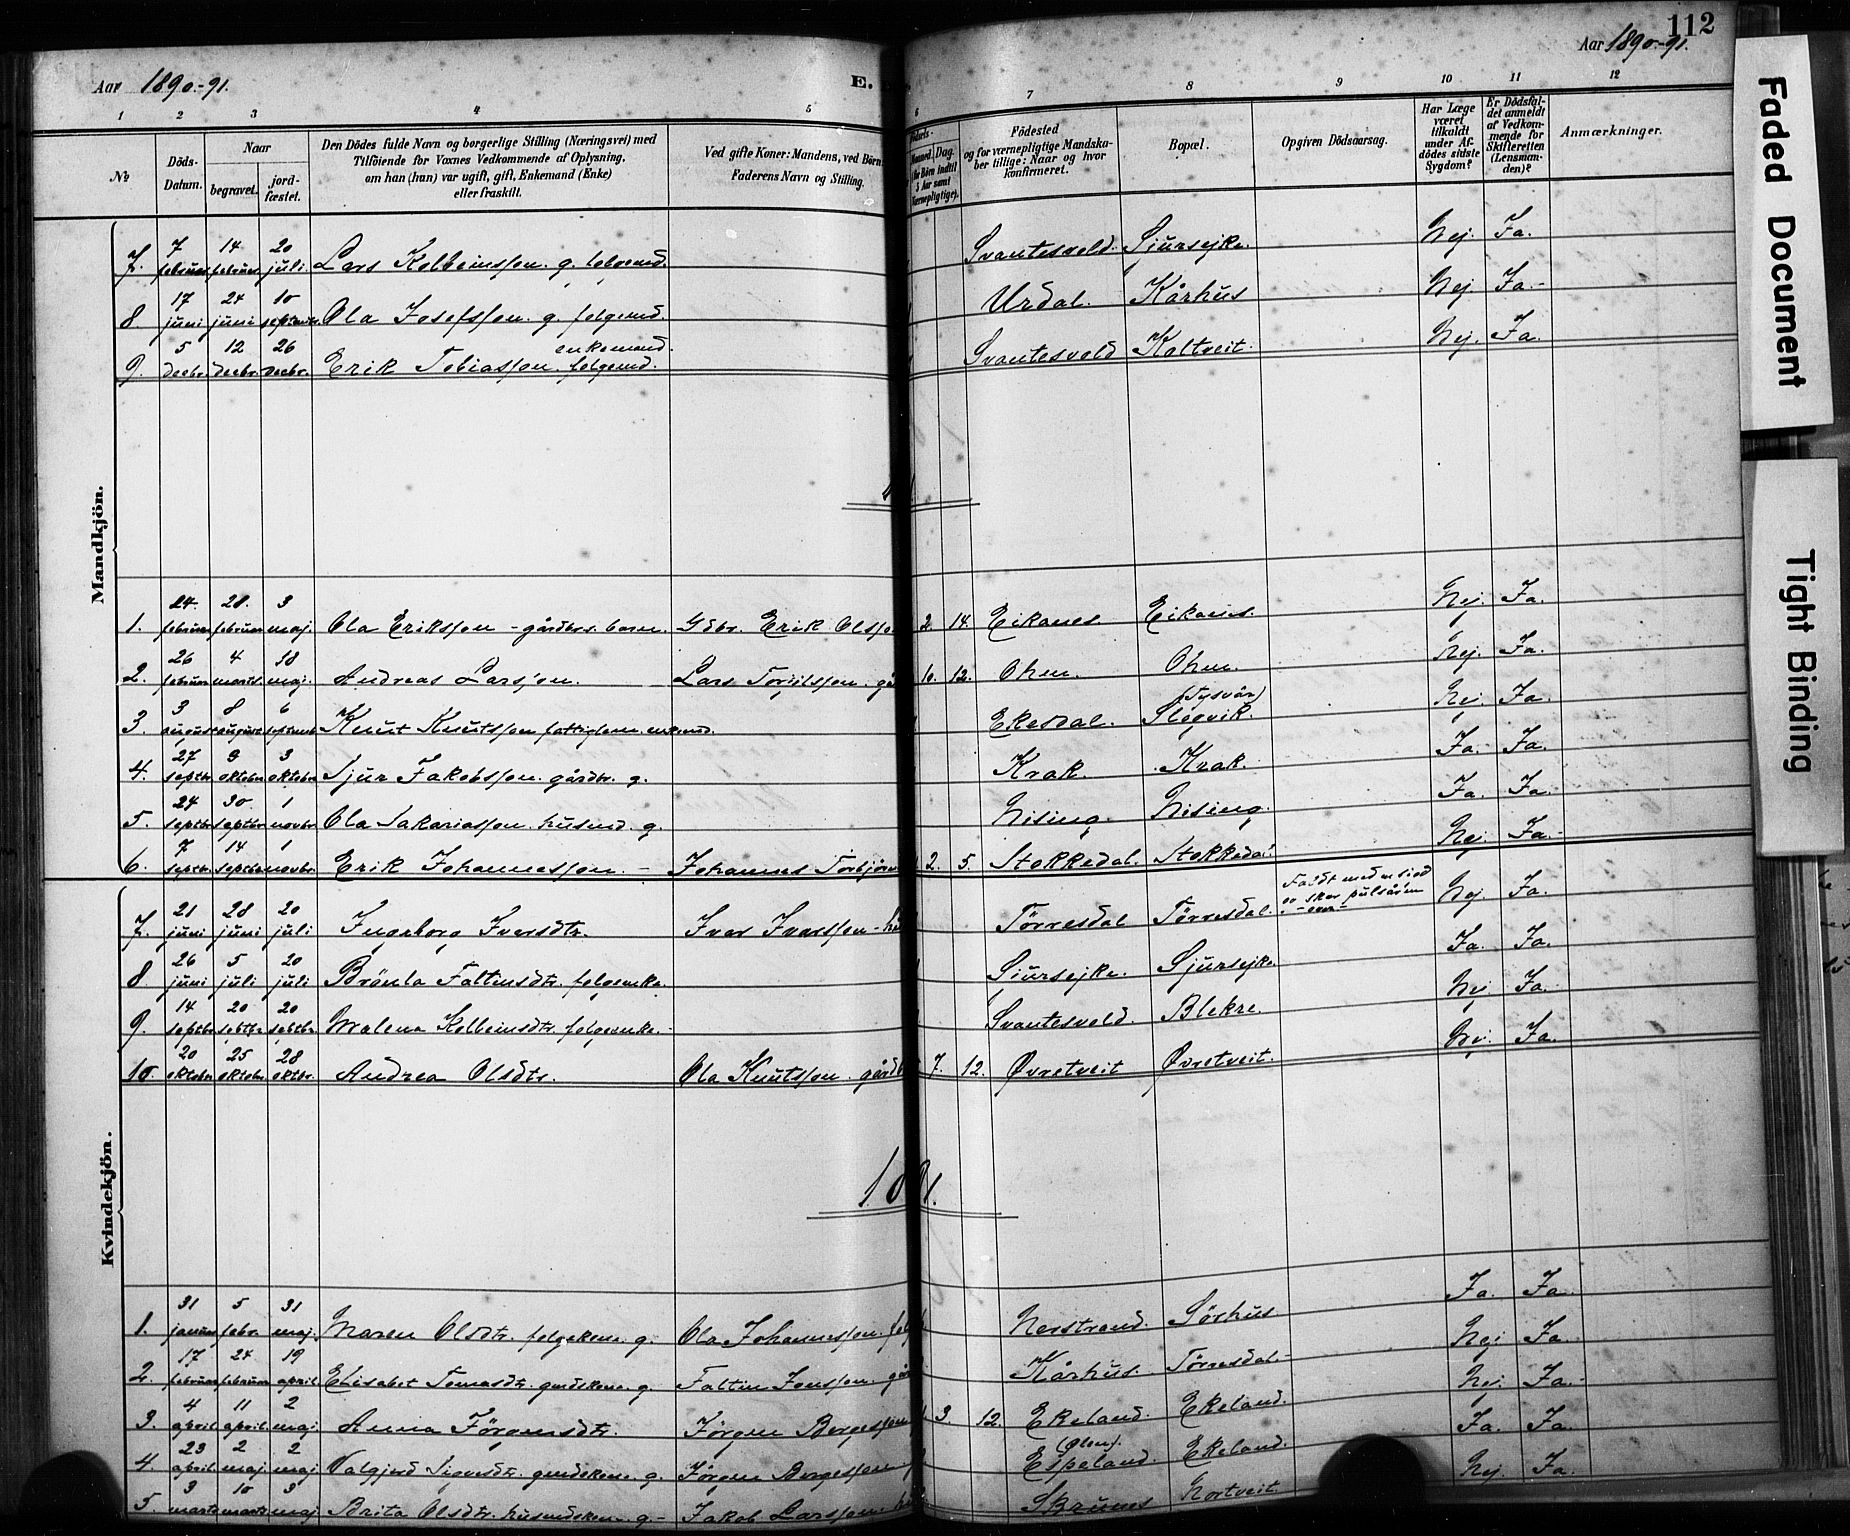 112
Aar 1890-91.
E.
Aar 1890-91.
1 2 3 4 5 6 7 8 9 10 11 12
№
Döds-Datum.
Naar
begravet.
jord-fæstet.
Den Dödes fulde Navn og borgerlige Stilling (Næringsvei) med
Tilföiende for Voxnes Vedkommende af Oplysning,
om han (hun) var ugift, gift, Enkemand (Enke)
eller fraskilt.
Ved gifte Koner: Mandens, ved Börn
Faderens Navn og Stilling.
Maaned. Dag.
Födested
og for værnepligtige Mandska-
ber tillige: Naar og hvor
konfirmeret.
Bopæl.
Opgiven Dödsaarsag.
Har Læge
været
tilkaldt
under Af-
dödes sidste
Sygdom?
Er Dödsfal-
det anmeldt
af Vedkom-
mende for
Skifteretten
(Lensman-
den)?
Anmærkninger.
Mandkjön.
7. 7 februar 14 februar 20 juli. Lars Kolbeinssen. g. folgemd. Svantesvold. Sjursejke. Nej. Ja.
8. 17 juni 24 juni 10 septmbr. Ola Josefssen. g. folgemd. Urdal. Kårhus Nej. Ja.
9. 5 decbr. 12 decbr. 26 decbr. Erik Tobiassen. enkemand. folgemd. Svantesvold Koltveit. Nej. Ja.
1. 24. februar 28. februar 3 maj. Ola Erikssen - gårdbrs. barn. Gdbr. Erik Olss 2. 14. Eikanes Eikanes. Nej. Ja.
2. 26 februar 4 marts. 18 maj. Andreas Larssen. Lars Torjilssen. 10. 12. Ohm. Ohm. Nej. Ja.
3. 3 august 8 august 6 septemb. Knut Knutssen fattiglem. enkemd. Ekesdal. (Tysvär) Slogvik. Nej. Ja.
4. 27 septbr. 9 oktober 3 oktober Sjur Jakobssen. gårdbr. g. Krak. Krak. Ja. Ja.
5. 24 septbr. 30 septbr. 1 novbr. Ola Sakariassen. husmd. g. Nising. Nising. Ja. Ja.
6. 7. septbr. 14 septbr. 1 novbr. Erik Johannessen. - Johannes Torbjörn 2. 5. Stokkedal. Stokkedal. Nej. Ja.
Kvindekjön.
7. 21 juni 28 juni 20 juli Ingeborg Ivarsdtr. Ivar Ivarssen - Törresdal Törresdal. Nej. Ja.
8 26 juni 5 juli 20 juli Brönla Faltinsdtr. folgeenke. Sjursejke. Sjursejke. Ja. Ja.
9. 14 septbr. 20 septbr. 20 septbr. Malena Kolbeinsdtr. folgeenke. Svantesvold. Blekre. Nej Ja.
10. 20 oktober 25 oktober 28 oktbr. Andrea Olsdtr. Ola Knutssen. gårdb 7. 12. Øvretveit Øvretveit. Nej. Ja.
1891.
1. 31 januar 5 febr. 31 maj. Maren Olsdtr. folgekone. g. Ola Johannessen. fol Nerstrand. Sörhus Ja. Ja.
2. 17 februar 24 februar 19 april. Elisabet Tomasdtr. gmdskone. g. Faltin Jonssen. Kårhus. Törresdal. Nej. Ja.
3. 4 april 11 april. 2 maj. Anna Jörgensdtr. Jörgen Borgessen 3. 12. Ekeland. Ekeland. Nej. Ja.
4. 23 april 2 maj 2 maj Valgjerd Sigvesdtr. gmdskone. g. Jörgen Borgessen. (Ølen). Espeland. Ekeland. Ja. Ja.
5. 3 marts 10 marts 3 maj Brita Olsdtr. husmdskone. g. - Jakob Larssen. Skrunes Nortveit Nej. Ja.
Faded Document
Tight Binding